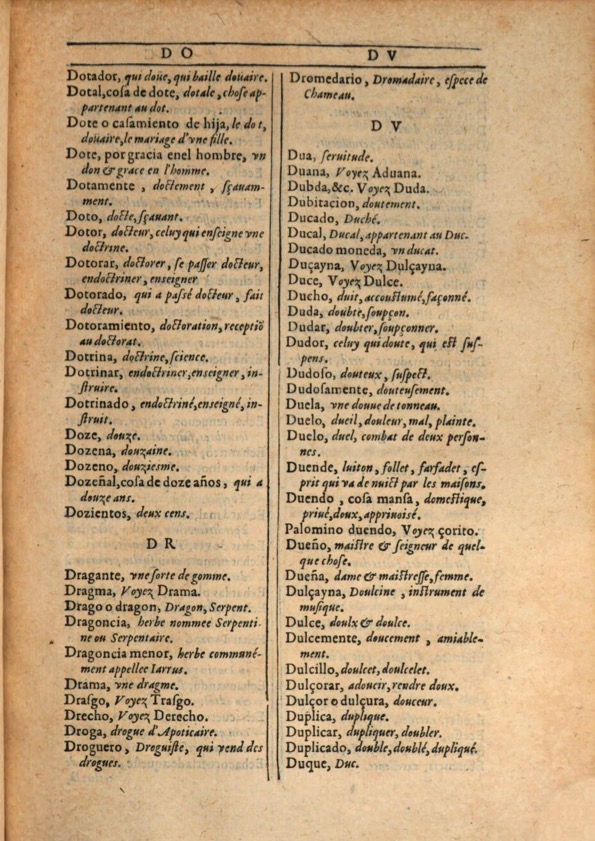 DO
Dotador, qui doüe, qui baille doüaire.
Dotal, cosa de dote, dotale, chose ap-
partenant au dot.
Dote o casamiento de hija, le dot,
doüaire, le mariage d'vne fille.
Dote, por gracia enel hombre, vn
don & grace en l'homme.
Dotamente, doctement, sçauam-
ment.
Doto, docte, sçauant.
Dotor, docteur, celuy qui enseigne vne
doctrine.
Dotorar, doctorer, se passer docteur,
endoctriner, enseigner.
Dotorado, qui a passé docteur, fait
docteur.
Dotoramiento, doctoration, receptiō
au doctorat.
Dotrina, doctrine, science.
Dotrinar, endoctriner, enseigner, in-
struire.
Dotrinado, endoctriné, enseigné, in-
struit.
Doze, douze.
Dozena, douzaine.
Dozeno, douziesme.
Dozeñal, cosa de doze años, qui a
douze ans.
Dozientos, deux cens.
DR
Dragante, vne sorte de gomme.
Dragma, Voyez Drama.
Drago o dragon, Dragon, Serpent.
Dragoncia, herbe nommee Serpenti-
ne ou Serpentaire.
Dragoncia menor, herbe communé-
ment appellee Iarrus.
Drama, vne dragme.
Drasgo, Voyez Trasgo.
Drecho, Voyez Derecho.
Droga, drogue d'Apoticaire.
Droguero, Droguiste, qui vend des
drogues.
DV
Dromedario, Dromadaire, espece de
Chameau.
DV
Dua, seruitude.
Duana, Voyez Aduana.
Dubda, &c. Voyez Duda.
Dubitacion, doutement.
Ducado, Duché.
Ducal, Ducal, appartenant au Duc.
Ducado moneda, vn ducat.
Duçayna, Voyez Dulçayna.
Duce, Voyez Dulce.
Ducho, duit, accoustumé, façonné.
Duda, doubte, soupçon.
Dudar, doubter, soupçonner.
Dudor, celuy qui doute, qui est sus-
pens.
Dudoso, douteux, suspect.
Dudosamente, douteusement.
Duela, vne douue de tonneau.
Duelo, dueil, douleur, mal, plainte.
Duelo, duel, combat de deux person-
nes.
Duende, luiton, follet, farfadet, es-
prit qui va de nuict par les maisons.
Duendo, cosa mansa, domestique,
priué, doux, appriuoisé.
Palomino duendo, Voyez çorito.
Dueño, maistre & seigneur de quel-
que chose.
Dueña, dame & maistresse, femme.
Dulçayna, Doulcine, instrument de
musique.
Dulce, doulx & doulce.
Dulcemente, doucement, amiable-
ment.
Dulcillo, doulcet, doulcelet.
Dulçorar, adoucir, rendre doux.
Dulçor o dulçura, douceur.
Duplica, duplique.
Duplicar, dupliquer, doubler.
Duplicado, double, doublé, dupliqué.
Duque, Duc.